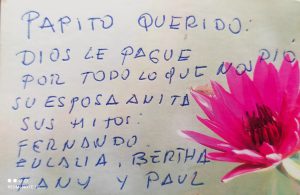 PAPITO QUERIDO:
DIOS LE PAGUE
POR TODO LO QUE NOS DIÓ
SU ESPOSA ANITA
SUS HIJOS:
FERNANDO.
EULALIA, BERTHA
TANY Y PAUL